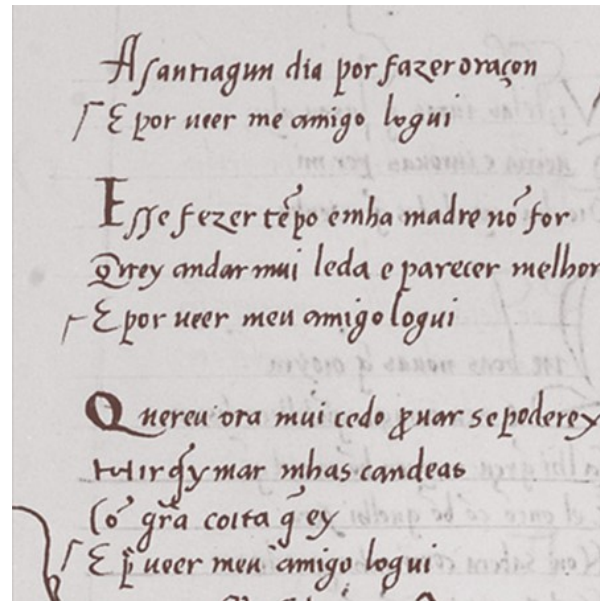 A santiagun dia por fazer oraçon
E por ueer me amigo logui
Esse fezer tẽpo e mha madre nõ for
Q̃rrey andar mui leda e parecer melhor
E por ueer meu amigo logui
Quereu ora mui cedo ꝓuar se poderey
hir q̃ymar mhas candeas
Cõ grã coita q̃ ey
E p̃ ueer meu amigo logui